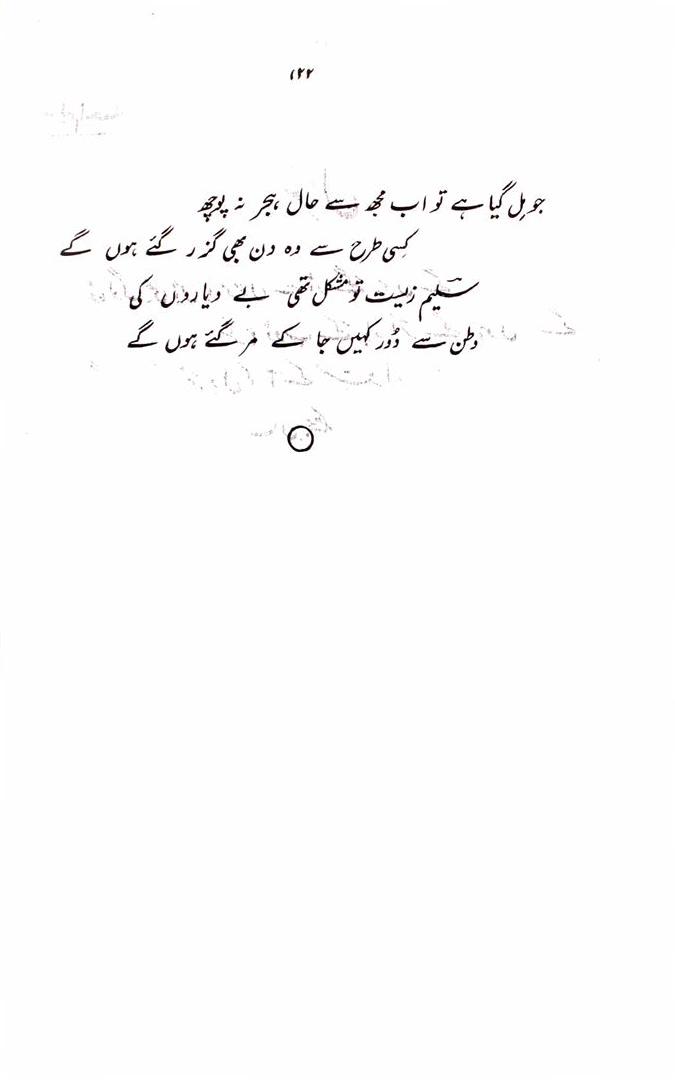 ۱۲۲
جو مِل گیا ہے تو اب مجھ سے حال ہجر نہ پوچھ
کِسی طرح سے وہ دن بھی گزر گئے ہوں گے
سلیمؔ زیست تو مشکل تھی بے دیاروں کی
وطن سے دُور کہیں جا کے مر گئے ہوں گے